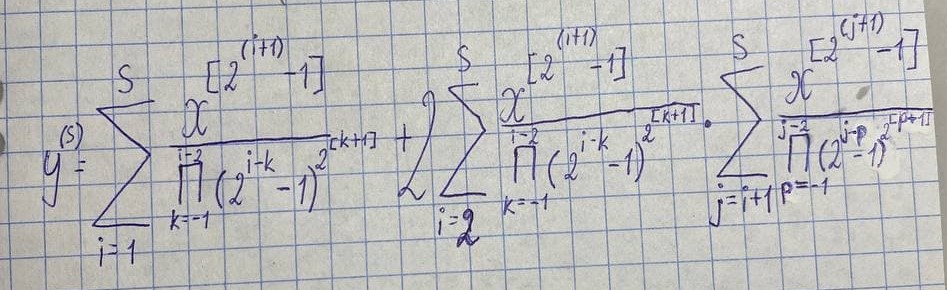 y^{(S)} = \sum_{i=1}^{S} \frac{x^{[2^{(i+1)}-1]}}{\prod_{k=-1}^{i-2} (2^{i-k}-1)^{2^{[k+1]}}} + 2 \sum_{i=2}^{S} \frac{x^{[2^{(i+1)}-1]}}{\prod_{k=-1}^{i-2} (2^{i-k}-1)^{2^{[k+1]}}} \cdot \sum_{j=i+1}^{S} \frac{x^{[2^{(j+1)}-1]}}{\prod_{p=-1}^{j-2} (2^{j-p}-1)^{2^{[p+1]}}}